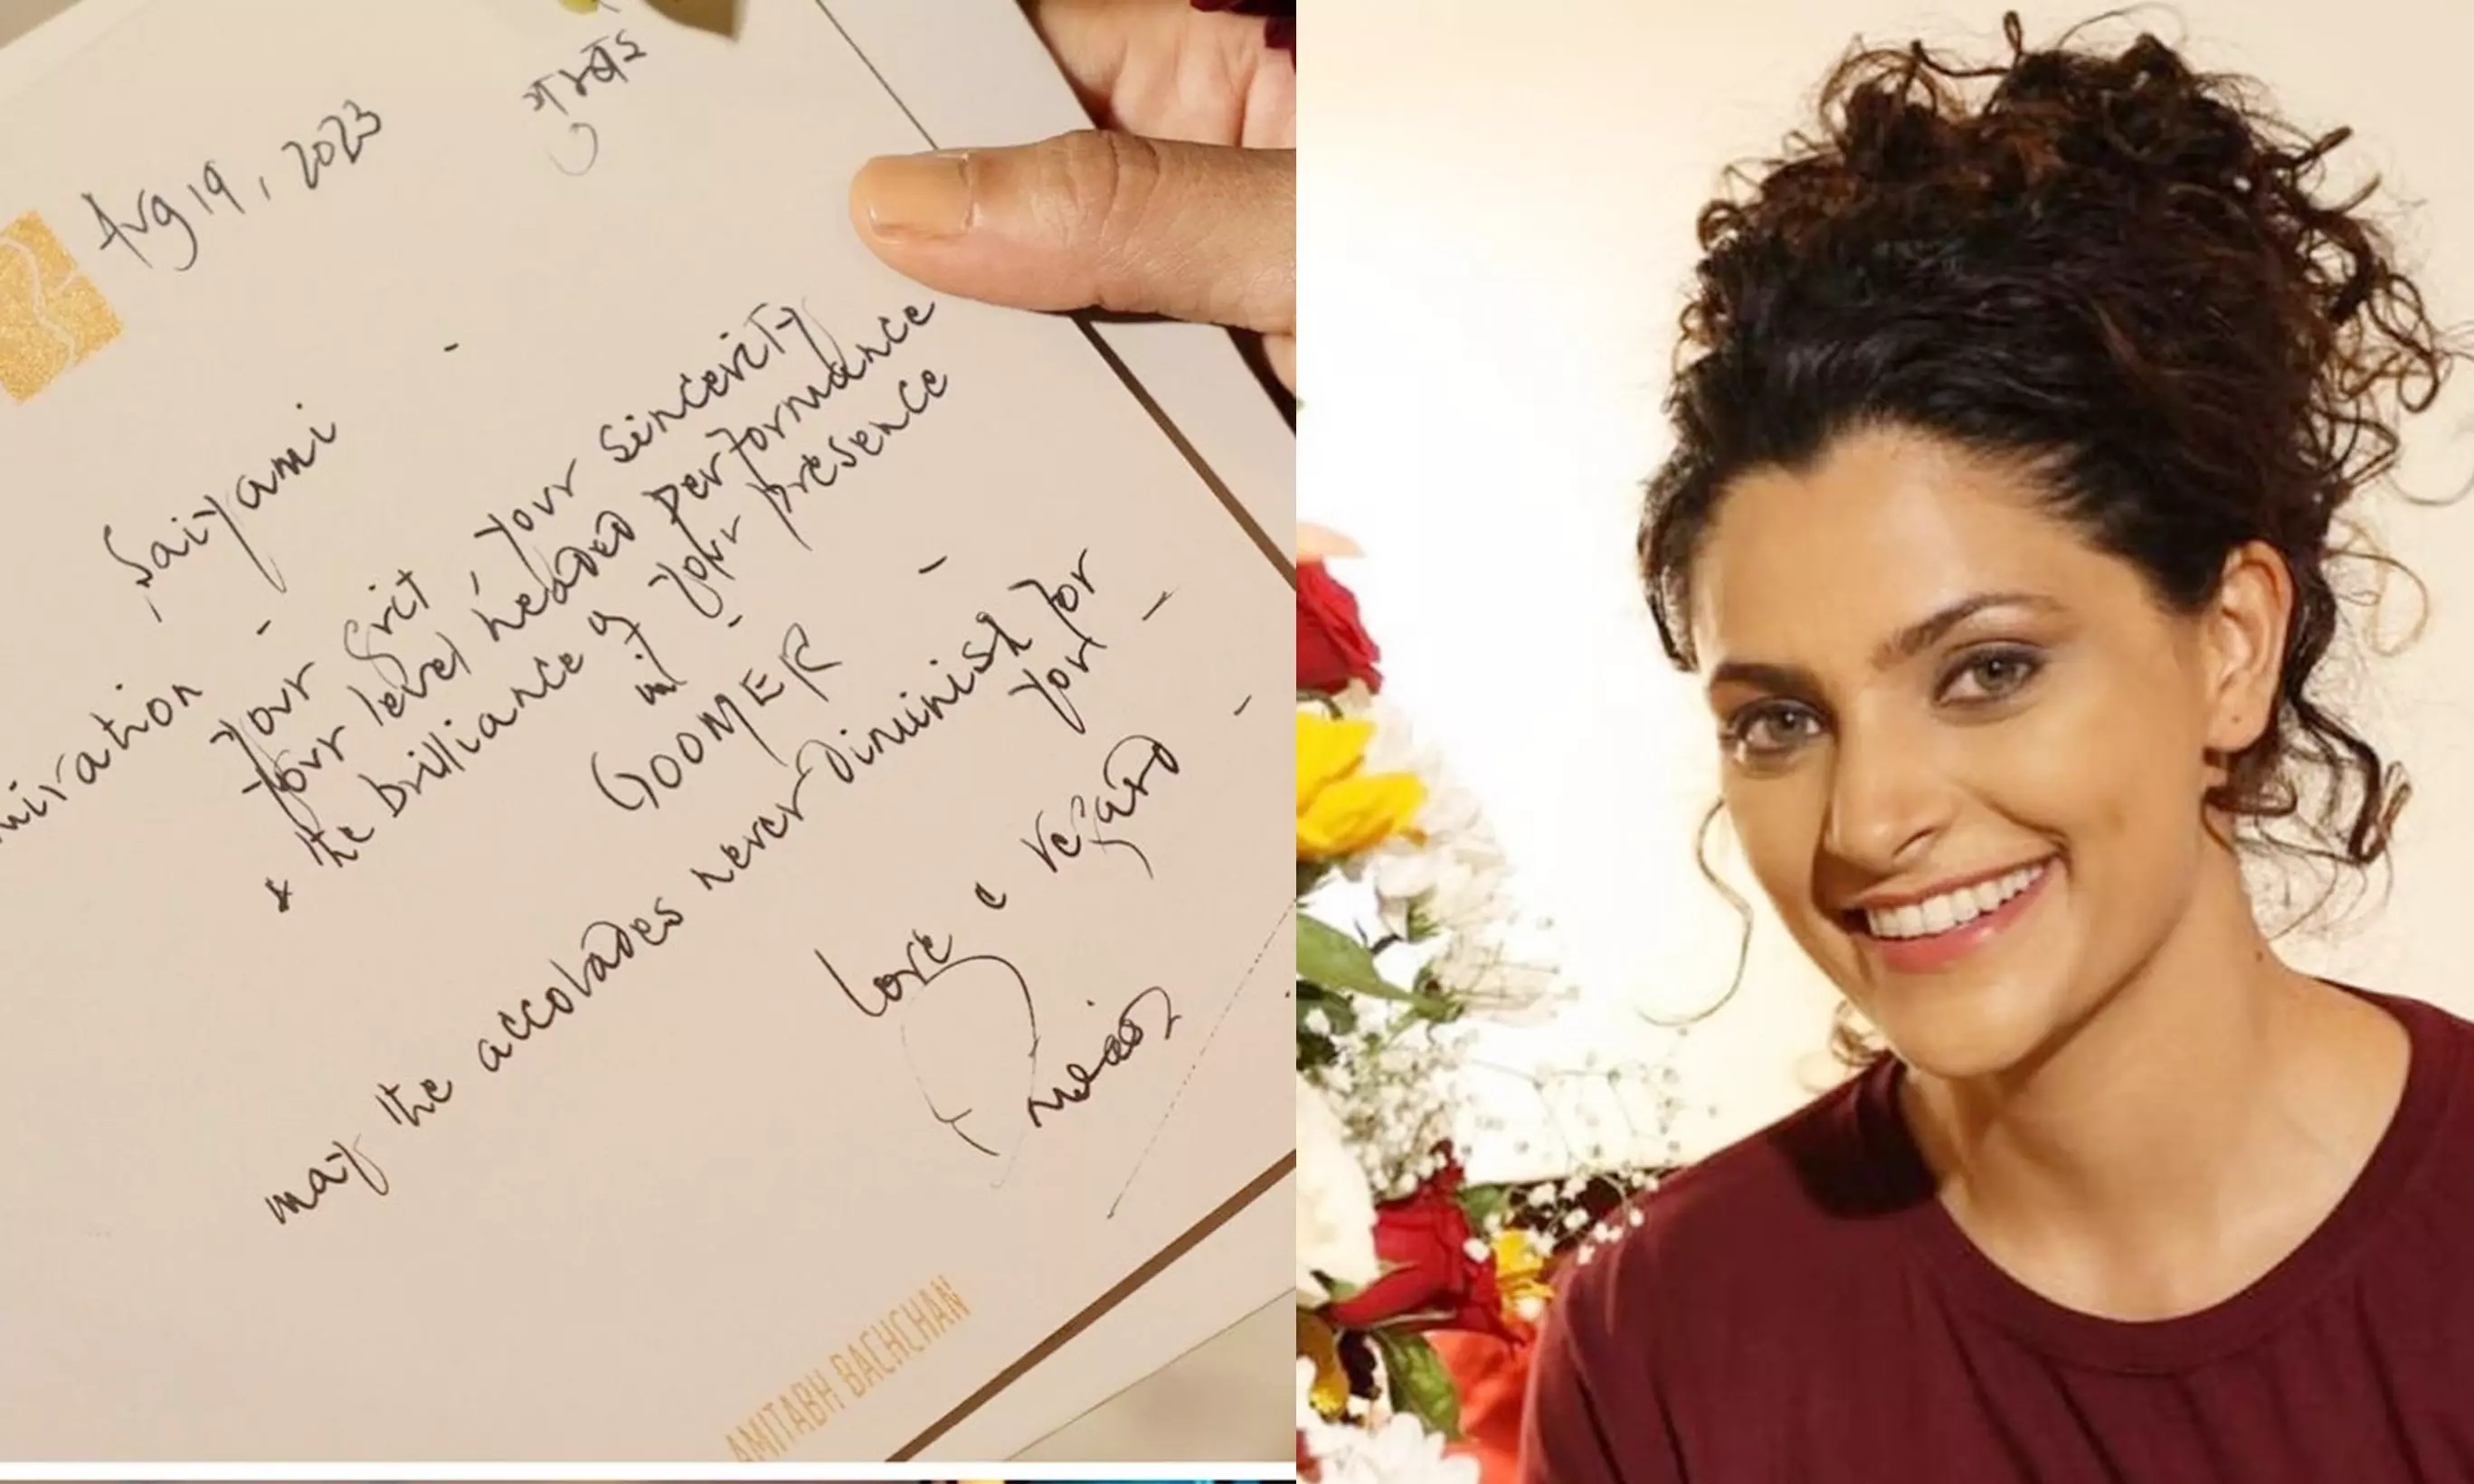 Aug 19, 2023
Saiyami -
miration -
your grit, your sincerity
your level headed performance
& the brilliance of your presence
in -
GOOMER -
may the accolades never diminish for
you -
love & regard -
AMITABH BACHCHAN